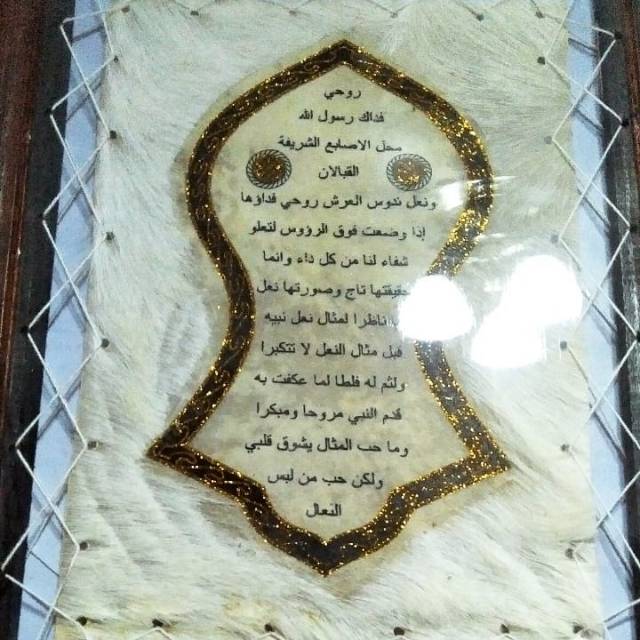 روحي
فداك رسول الله
محل الاصابع الشريفة
القبالان
ونعل تدوس العرش روحي فداؤها
إذا وضعت فوق الرؤوس لتعلو
شفاء لنا من كل داء وانما
حقيقتها تاج وصورتها نعل
ناظرا لمثال نعل نبيه
قبل مثال النعل لا تتكبرا
ولثم له فلطا لما عكفت به
قدم النبي مروحا ومبكرا
وما حب المثال يشوق قلبي
ولكن حب من لبس
النعال